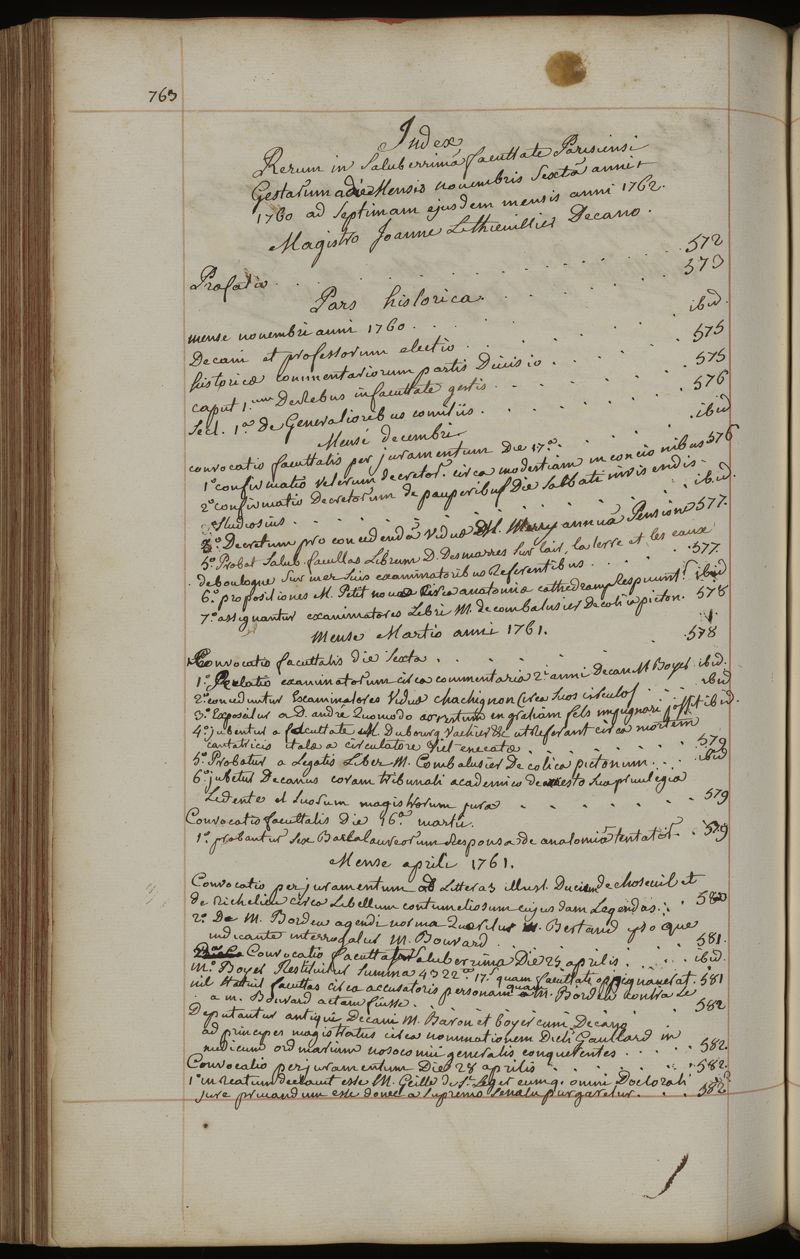 763
Index
Rerum in Saluberrimâ facultate Parisiensi
Gestarum a die Mensis novembris Sextâ anni
1760 ad Septimam ejusdem mensis anni 1762.
Magistro Joanne LeThieuillier Decano.
Præfatio . . . 572
Pars historica . . . 573
mense novembri anni 1760 . . . ibid.
Decani et professorum electio . . . 575
historicæ commentariorum partis Divisio . . . 575
caput 1.um De Rebus in facultate gestis . . . 576
Sect. 1.a De Generalioribus comitiis . . . ibid
Mense decembri
convocatio facultatis per juramentum Die 17.a . . . 576
1.o confirmatio veterum decretor. circa modestiam in concionibus
2.o confirmatio Decretorum de pauperibus Die Sabbati invisendis
Studiosius . . . ibid.
3.o Decretum pro concedendâ viduæ M. Merry annuâ Pensione 577.
5.o Probat Salub. facultas Librum D. Desmarres Sur lair, la terre et les eaux
de boulogne Sur mer Suis examinatoribus Referentibus . . . 577.
6.o propositiones M. Petit novæ circa anatomiæ cathedram ibid
7.o assignantur examinatores Libri M. de combalusier De colicâ picton. 578
Mense Martio anni 1761.
Convocatio facultatis die Sexta . . . 578
1.o Relatio examinatorum circa commentaria 2.i anni Decan. M Boyer ibid.
2.o conceduntur Examinatores viduæ Chachignon circa Suos circulos . . ibid
3.o Exponitur a D. andré Quomodo adversum en graham fels impugnari possit ibid.
4.o jubentur a facultate M. Dubourg Vacher &c ut Referant circa mortem
cantatricis italæ a circulatore enecatæ . . . 579
5.o Probatur a Legatis Liber M. Combalusier De colica pictonum . . . ibid
6.o jubetur Decanus coram tribunali academico de Sua privilegia
Ledente et Suorum magistrorum jura . . . 579
Convocatio facultatis Die 16.a martii.
1.o probantur Sex Baccalaureorum Responsa de anatomiâ tentator. . 579
Mense aprili 1761.
Convocatio per juramentum ob Litteras illust. Ducum de choseuil et
de Richelieu circa Libellum contumeliosum cujusdam Legendas . . 580
2.o De M. Bordeu agendi norma Quæritur M. Bertrand ipso que
indicante interrogatur M. Bouvard . . . 581.
Convocatio facultatis Saluberrimæ Die 25 aprilis . . . ibid.
M.o Boyer Restituitur Summa 4322.# 17.s quam facultate oppignaverat. 581
nil Statuit facultas circa accusatoris personam quam M. Bordeu contra Se
a m. Bouvard actam fuisse.
Deputantur antiqui Decani M. Baron et boyer cum Decano . . . 582
ad principes magistratus circa nominationem Dicti Gaullard in
medicum ordinarium nosocomii generalis conquerentes . . . 582.
Convocatio per juramentum Die 28 aprilis . . . 582.
1.o in Reatum declarat esse M. Geille de S.t Leger eumq. omni Doctorali
jure privandum esse donec a Supremo Senatu purgaretur . . . 582